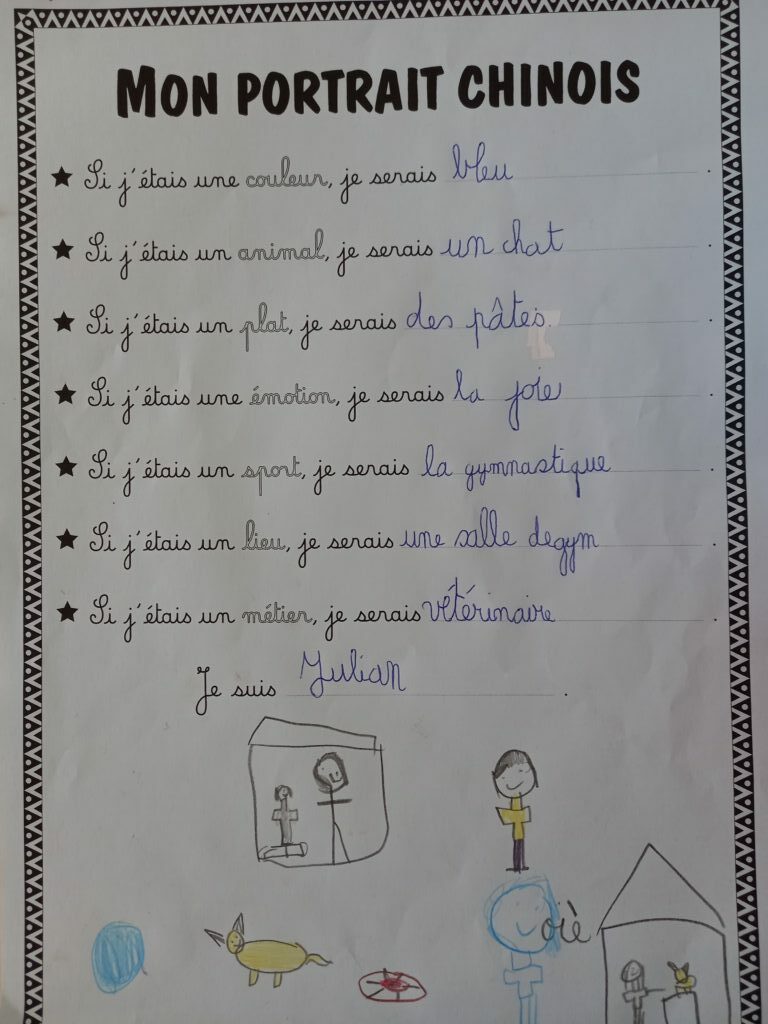 MON PORTRAIT CHINOIS
★ Si j'étais une couleur, je serais bleu.
★ Si j'étais un animal, je serais un chat.
★ Si j'étais un plat, je serais des pâtes.
★ Si j'étais une émotion, je serais la joie.
★ Si j'étais un sport, je serais la gymnastique.
★ Si j'étais un lieu, je serais une salle degym.
★ Si j'étais un métier, je serais vétérinaire.
Je suis Julian.